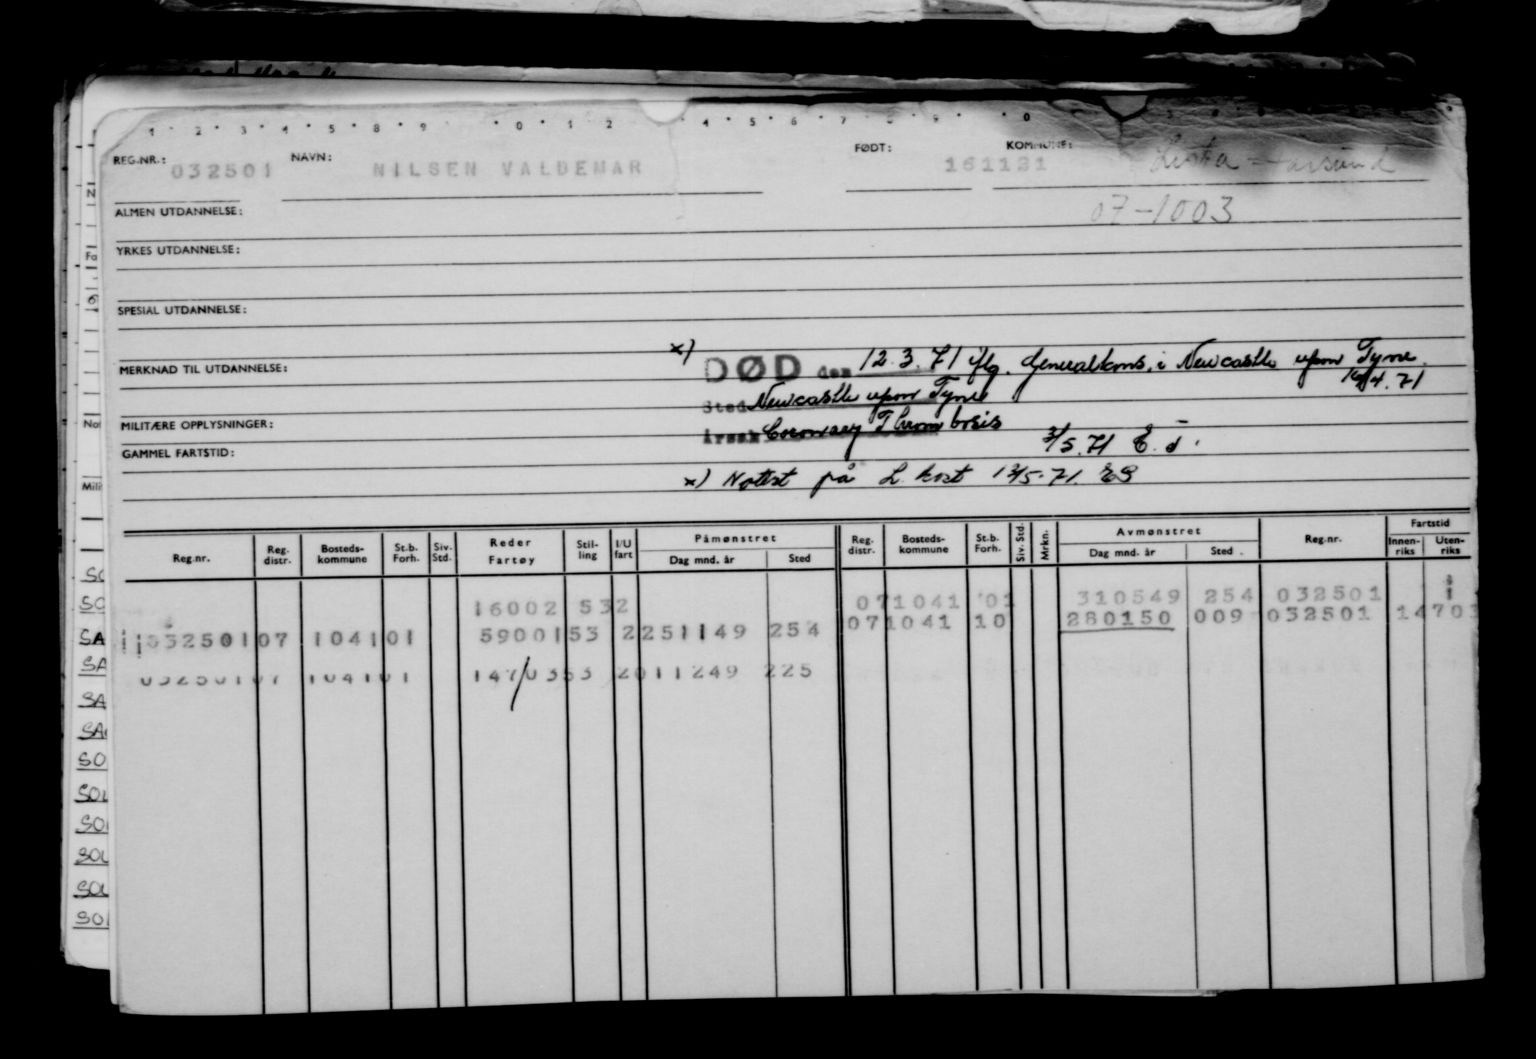 1 · 2 · 3 · 4 · 5 · 8 · 9 · 0 · 1 2 · 4 · 5 · 6 7 8 9 · 0
REG.NR.: 032501 NAVN: NILSEN VALDEMAR FØDT: 161121 KOMMUNE: Lista = Farsund
ALMEN UTDANNELSE: 07-1003
YRKES UTDANNELSE:
SPESIAL UTDANNELSE:
MERKNAD TIL UTDANNELSE: x) DØD den 12.3.71 iflg. Generalkons. i Newcastle upon Tyne
19/4.71
Sted Newcastle upon Tyne
MILITÆRE OPPLYSNINGER: Årsak Coronary Thrombosis
GAMMEL FARTSTID: 3/5.71
x) Notert på L. kort 13/5.71.
Reg.nr. Reg. distr. Bosteds- kommune St.b. Forh. Siv. Std. Reder Fartøy Stil- ling I/U fart Påmønstret Dag mnd. år Sted Reg. distr. Bosteds- kommune St.b. Forh. Siv. Std. Mrkn. Avmønstret Dag mnd. år Sted Reg.nr. Fartstid Innen- riks Uten- riks
16002 532 071041 01 310549 254 032501
032501 07 1041 01 59001 53 2 251149 254 071041 10 280150 009 032501 14703
032501 07 1041 01 14703 53 2 011249 225
N
Fa
6
Not
Mili
SO
SO
SA
SA
SA
SA
SO
SOL
SO
SOL
SOL
SO